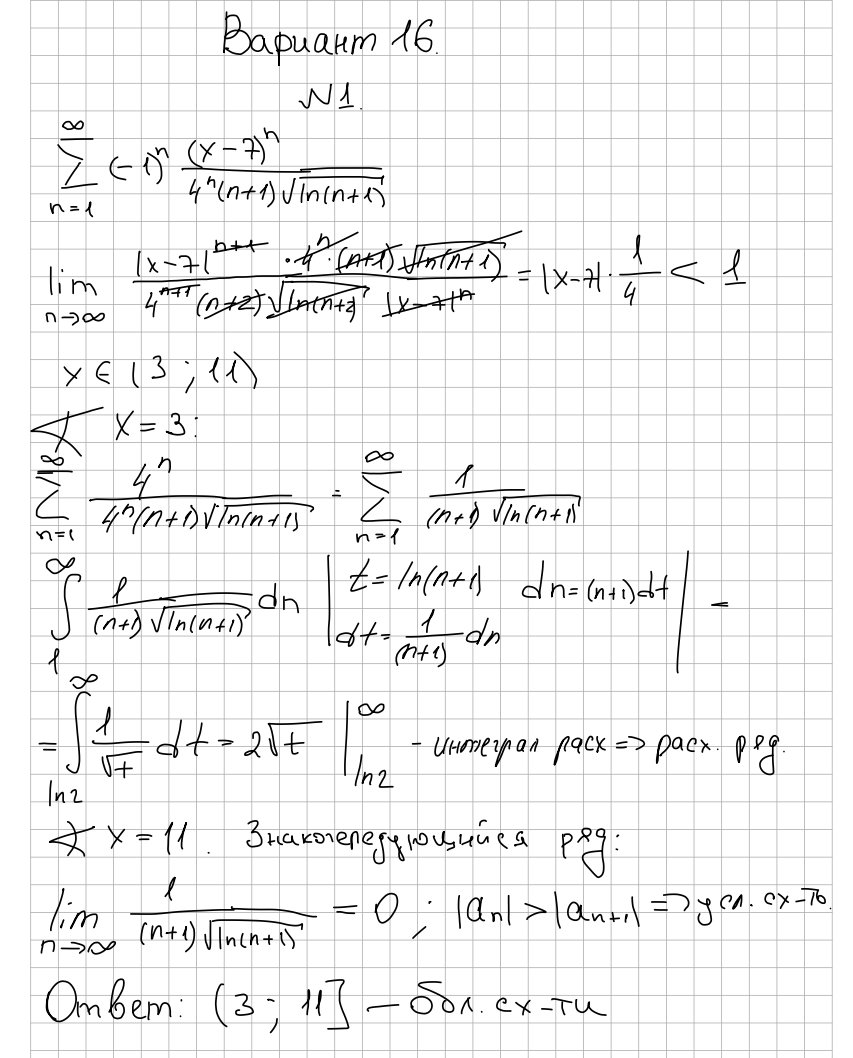 Вариант 16.
№1.
∑_{n=1}^{∞} (-1)^n (x-7)^n / (4^n(n+1)√ln(n+1))
lim_{n→∞} |x-7|^{n+1} · 4^n · (n+1)√ln(n+1) / (4^{n+1} (n+2)√ln(n+2) |x-7|^n) = |x-7| · 1/4 < 1
x ∈ (3 ; 11)
∢ x = 3:
∑_{n=1}^{∞} 4^n / (4^n(n+1)√ln(n+1)) = ∑_{n=1}^{∞} 1 / ((n+1)√ln(n+1))
∫_1^∞ 1 / ((n+1)√ln(n+1)) dn | t = ln(n+1) dn = (n+1)dt dt = 1/(n+1) dn | =
= ∫_{ln2}^∞ 1/√t dt = 2√t |_{ln2}^∞ - интеграл расх => расх. ряд.
∢ x = 11. Знакочередующийся ряд:
lim_{n→∞} 1 / ((n+1)√ln(n+1)) = 0 ; |a_n| > |a_{n+1}| => усл. сх-ть.
Ответ: (3 ; 11] — обл. сх-ти